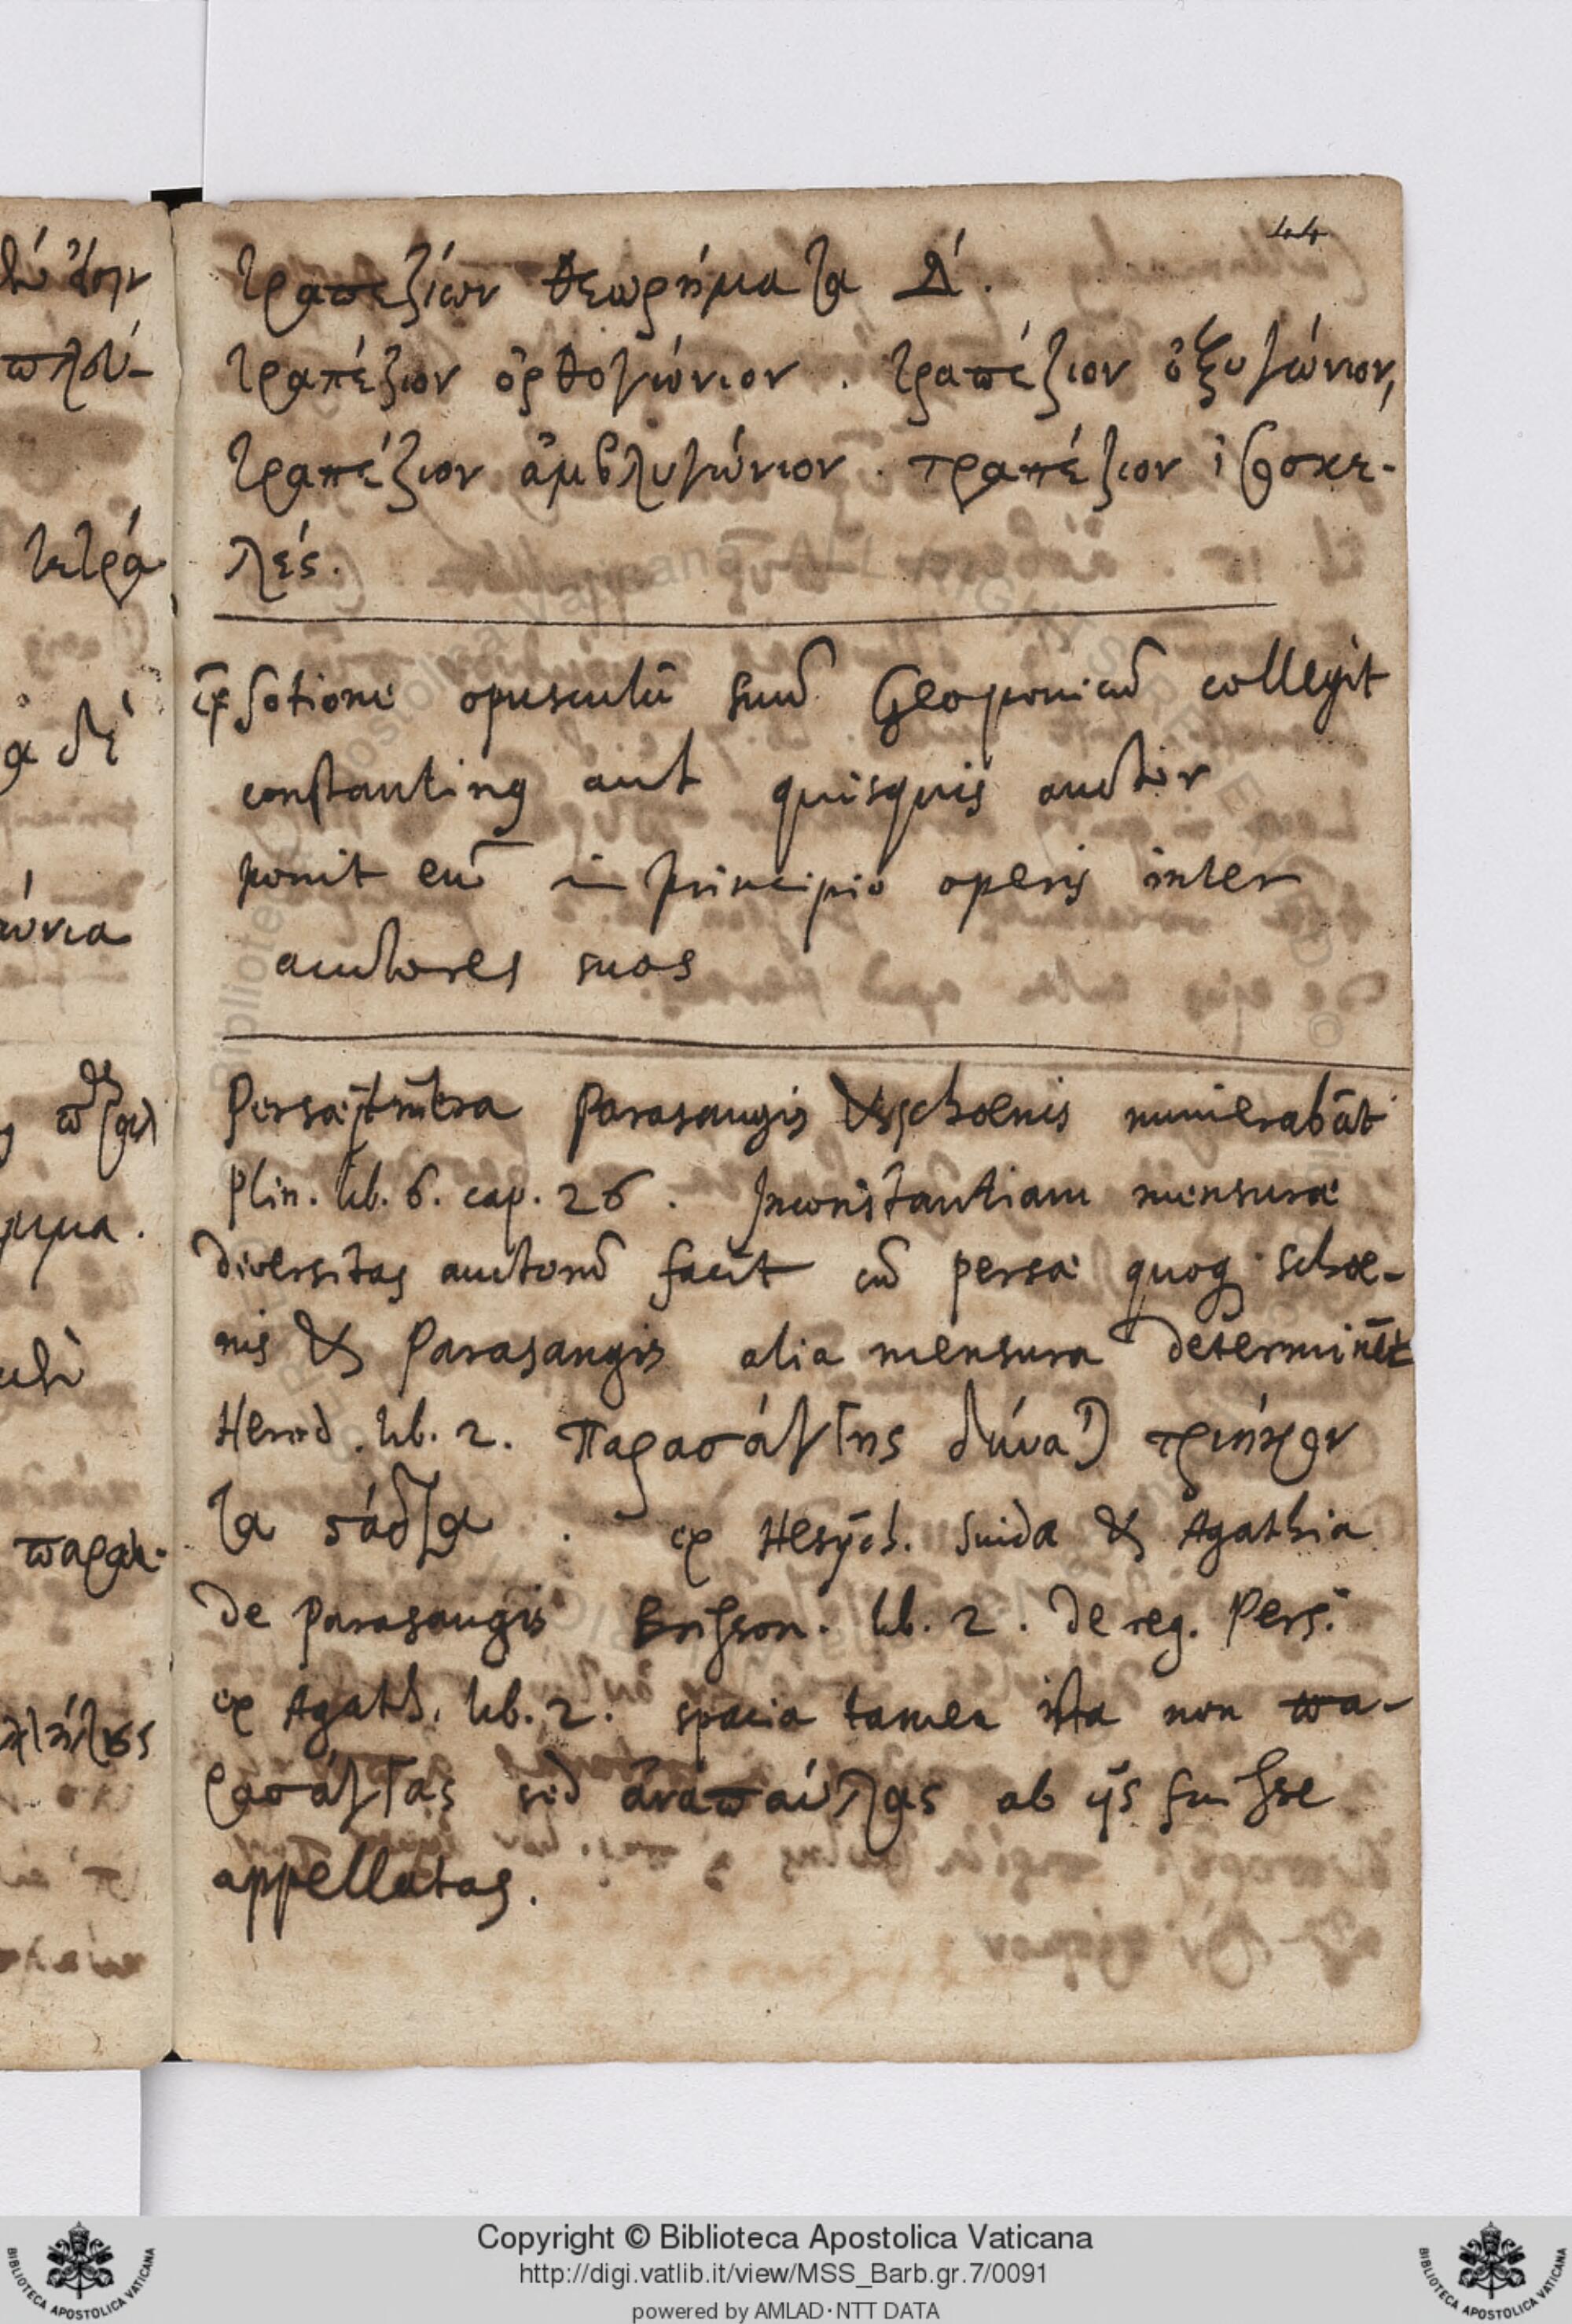 44
τραπεζίων θεωρήματα Δ΄.
τραπέζιον ὀρθογώνιον . τραπέζιον ὀξυγώνιον,
τραπέζιον ἀμβλυγώνιον . τραπέζιον ἰσοσκε-
λές.
ex Sotione opusculū suū Geoponicū collegit
constantinus aut quisquis auctor
ponit eū in principio operis inter
auctores suos
Persae Parasangis & schoenis numerabāt
Plin. lib. 6. cap. 26 . Inconstantiam mensurae
diversitas auctorū facit cū persae quoq schoe-
nis & Parasangis alia mensura determinēt
Herod. lib. 2. παρασάγγης δύναται τριήκον
τα στάδια . ex Hesych. Suida & Agathia
de parasangis Brisson. lib. 2. de reg. Pers.
ex Agath. lib. 2. spacia tamen ista non πα-
ρασάγγας sed ἀναπαύλας ab ijs fuisse
appellatas.
Copyright © Biblioteca Apostolica Vaticana
http://digi.vatlib.it/view/MSS_Barb.gr.7/0091
powered by AMLAD·NTT DATA